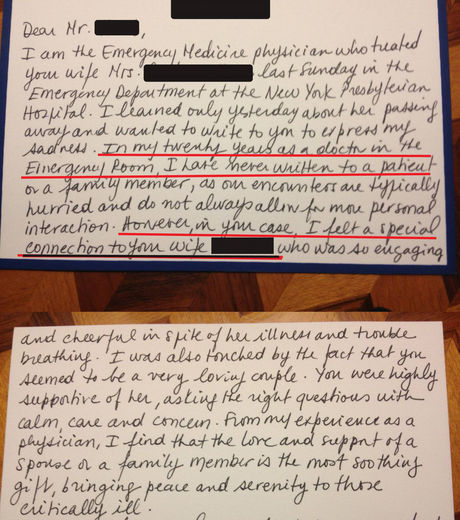 Dear Mr.       ,
I am the Emergency Medicine physician who treated
your wife Mrs.       last Sunday in the
Emergency Department at the New York Presbyterian
Hospital. I learned only yesterday about her passing
away and wanted to write to you to express my
sadness. In my twenty years as a doctor in the
Emergency Room, I have never written to a patient
or a family member, as our encounters are typically
hurried and do not always allow for more personal
interaction. However, in your case, I felt a special
connection to your wife       who was so engaging
and cheerful in spite of her illness and trouble
breathing. I was also touched by the fact that you
seemed to be a very loving couple. You were highly
supportive of her, asking the right questions with
calm, care and concern. From my experience as a
physician, I find that the love and support of a
spouse or a family member is the most soothing
gift, bringing peace and serenity to those
critically ill.